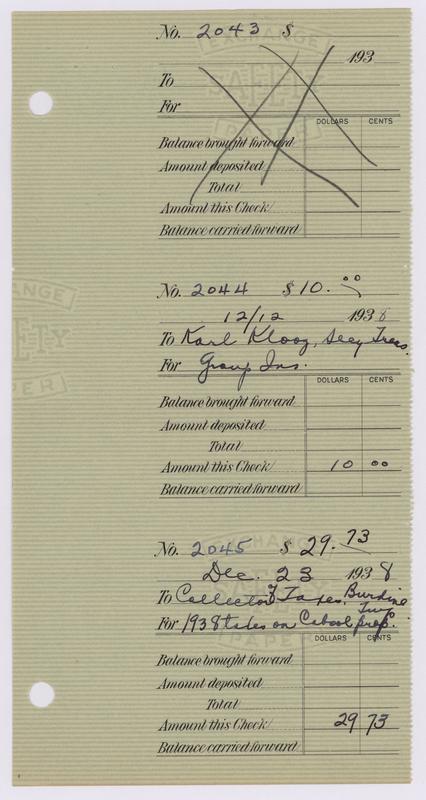 No. 2043 $
193
To
For
DOLLARS CENTS
Balance brought forward
Amount deposited
Total
Amount this Check
Balance carried forward
No. 2044 $10.00
12/12 1938
To Karl Klooz, Secy Treas.
For Group Ins.
DOLLARS CENTS
Balance brought forward
Amount deposited
Total
Amount this Check 10 00
Balance carried forward
No. 2045 $29.73
Dec. 23 1938
To Collector of Taxes, Burdine Twp
For 1938 taxes on Cabool prop.
DOLLARS CENTS
Balance brought forward
Amount deposited
Total
Amount this Check 29 73
Balance carried forward